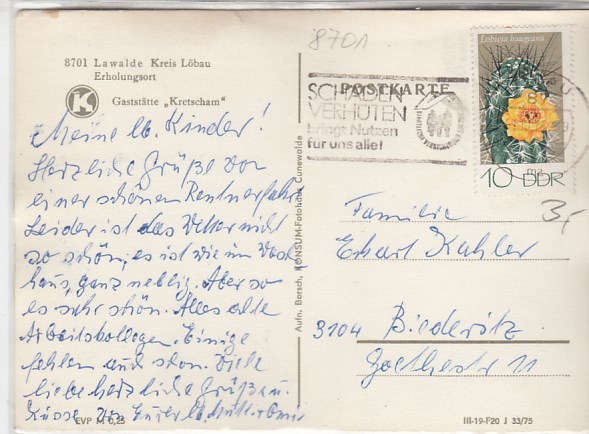 8701
8701 Lawalde Kreis Löbau
Erholungsort
K
Gaststätte „Kretscham"
Meine lb. Kinder!
Herzliche Grüße von
einer schönen Rentnerfahrt
Leider ist das Wetter nicht
so schön, es ist wie im
haus, ganz neblig. Aber so
es sehr schön. Alles alte
Arbeitskollegen. Einige
fehlen auch schon. Viele
liebe herzliche Grüße u.
Küsse Eurer lb. Mutti
EVP M 0,25
Aufn. Borsch, KONSUM-Fotohaus Cunewalde
POSTKARTE
SCHADEN
VERHÜTEN
bringt Nutzen
für uns alle!
Lobivia
10 DDR
3,-
Familie
Erhart Kahler
3104 Biederitz
Goethestr 11
III-19-F20 J 33/75